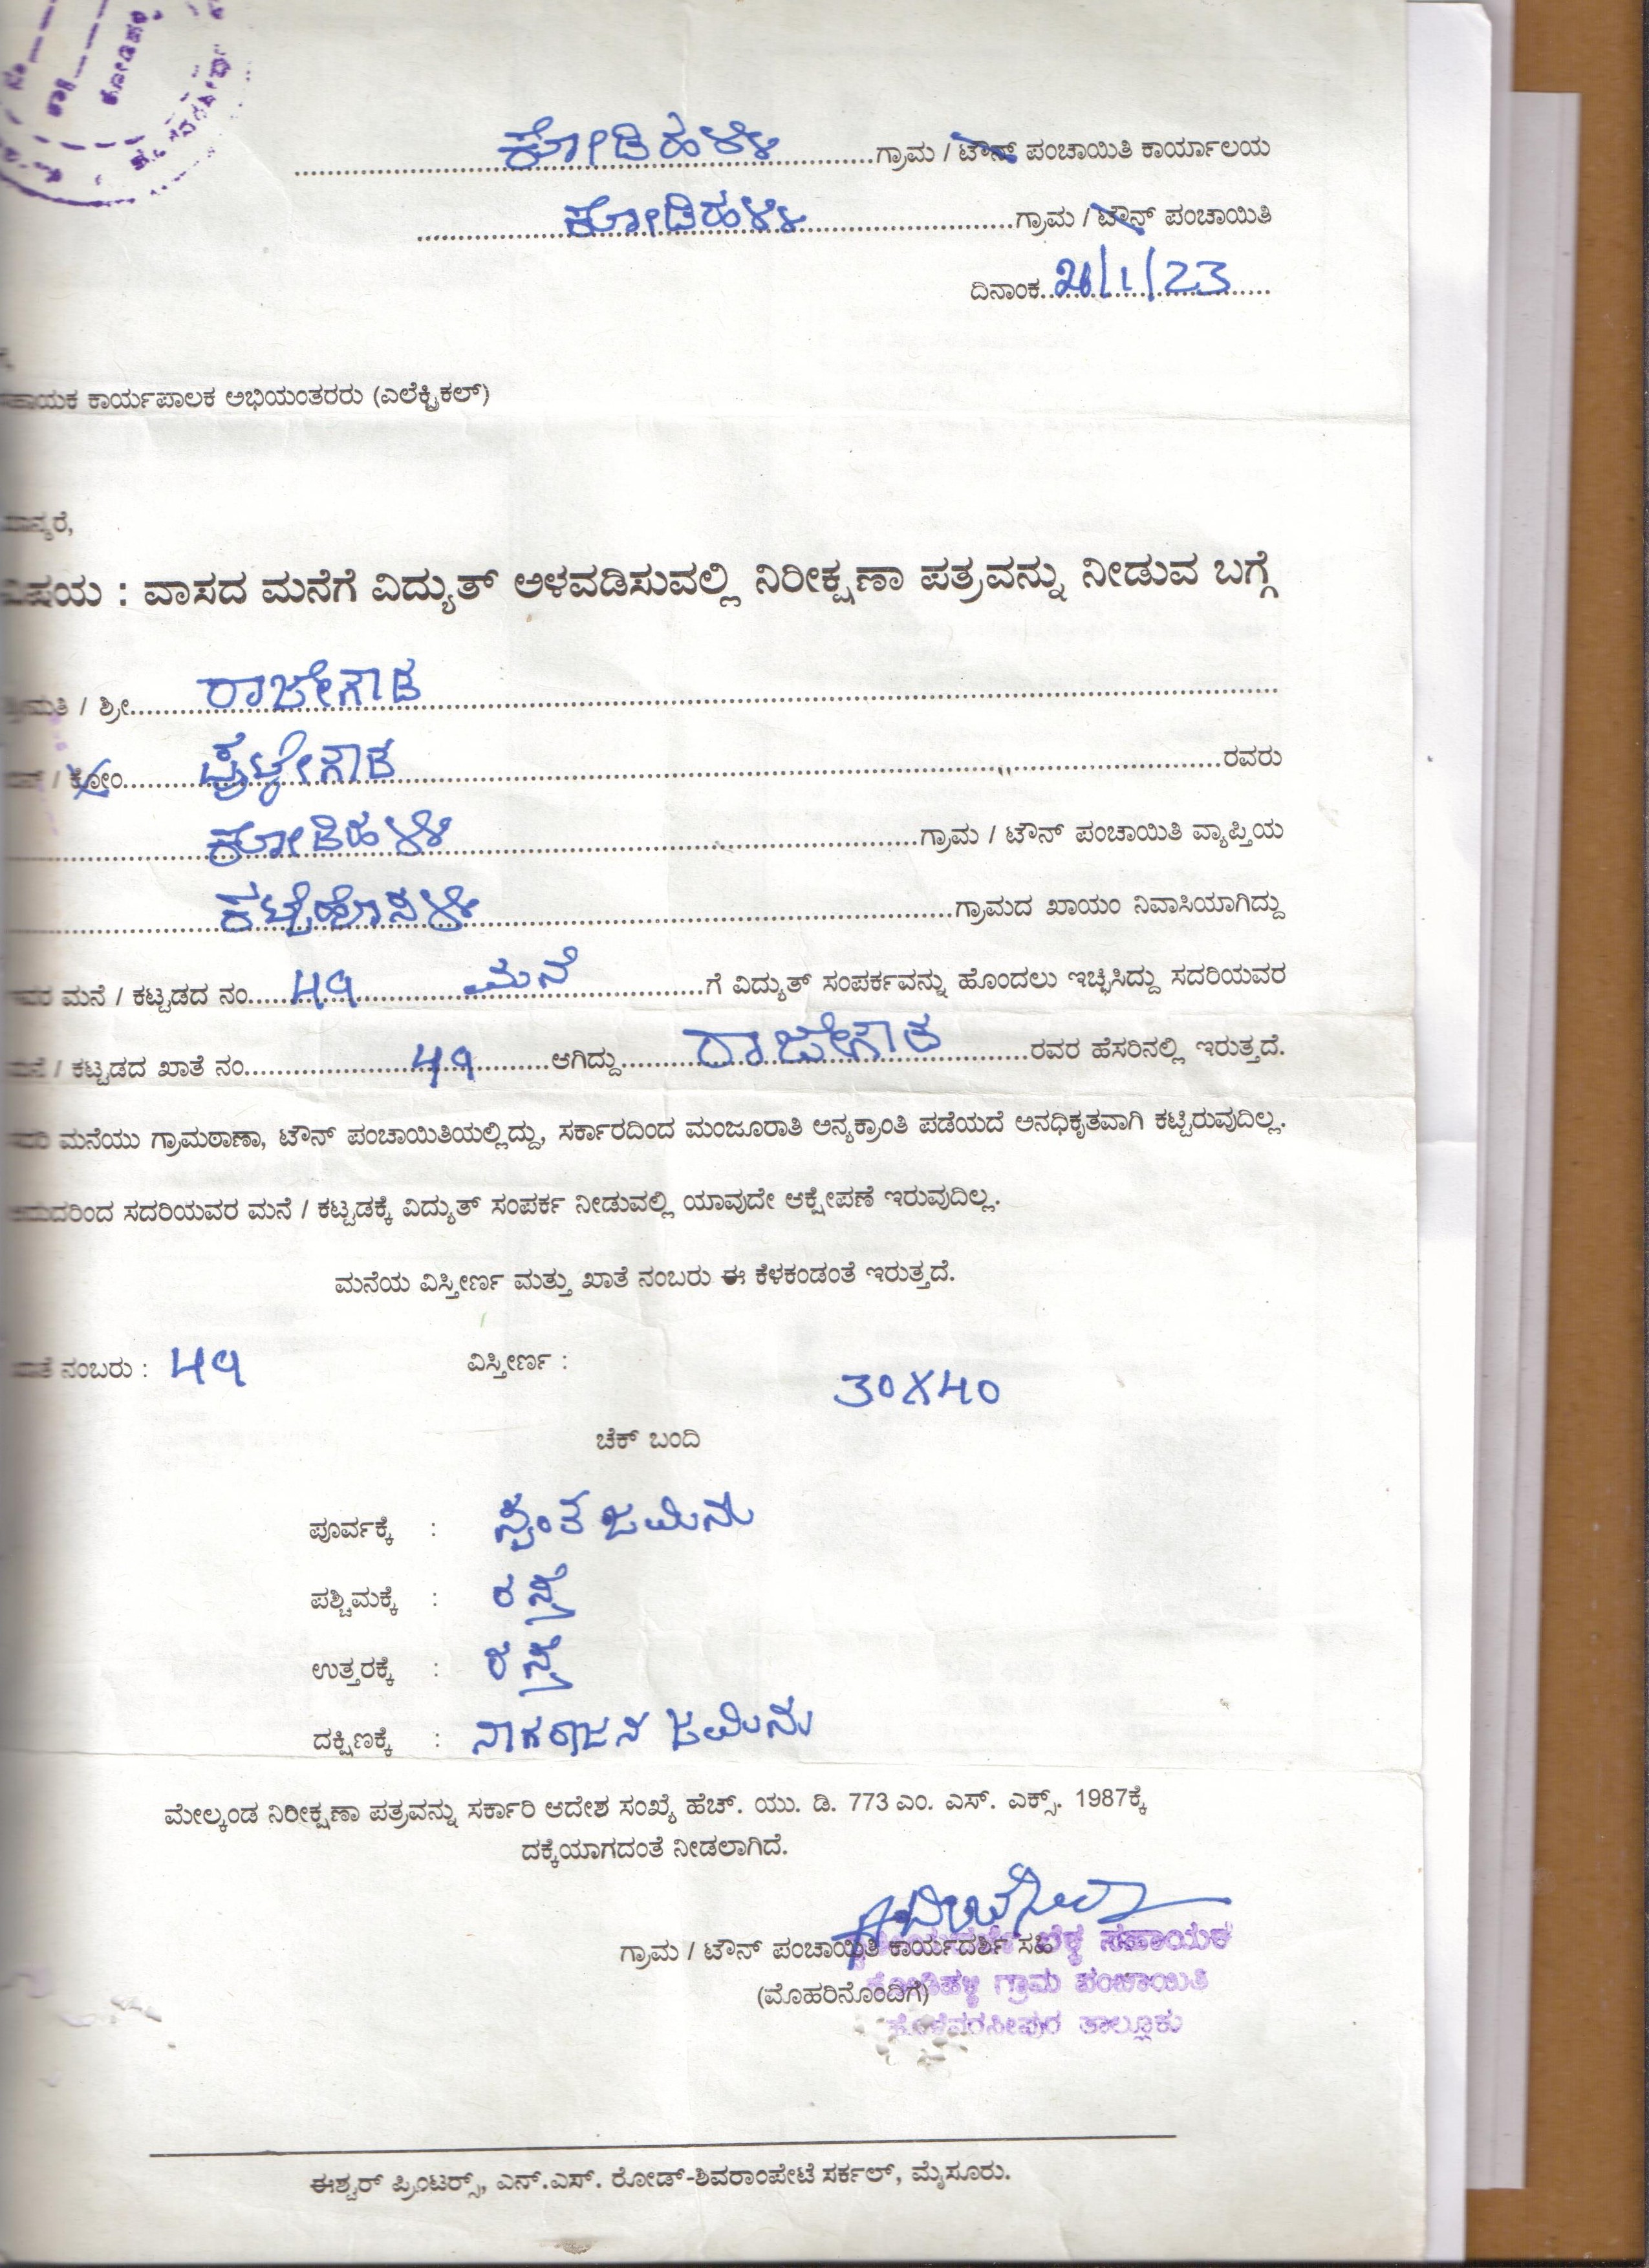 ಕೋಡಿಹಳ್ಳಿ ಗ್ರಾಮ / ಟೌನ್ ಪಂಚಾಯಿತಿ ಕಾರ್ಯಾಲಯ
ಕೋಡಿಹಳ್ಳಿ ಗ್ರಾಮ / ಟೌನ್ ಪಂಚಾಯಿತಿ
ದಿನಾಂಕ 26/1/23
ಸಹಾಯಕ ಕಾರ್ಯಪಾಲಕ ಅಭಿಯಂತರರು (ಎಲೆಕ್ಟ್ರಿಕಲ್)
ಮಾನ್ಯರೆ,
ವಿಷಯ : ವಾಸದ ಮನೆಗೆ ವಿದ್ಯುತ್ ಅಳವಡಿಸುವಲ್ಲಿ ನಿರೀಕ್ಷಣಾ ಪತ್ರವನ್ನು ನೀಡುವ ಬಗ್ಗೆ
ಶ್ರೀಮತಿ / ಶ್ರೀ ರಾಜೇಗೌಡ
ಬಿನ್ / ಕೋಂ ಪುಟ್ಟೇಗೌಡ ರವರು
ಕೋಡಿಹಳ್ಳಿ ಗ್ರಾಮ / ಟೌನ್ ಪಂಚಾಯಿತಿ ವ್ಯಾಪ್ತಿಯ
ಗ್ರಾಮದ ಖಾಯಂ ನಿವಾಸಿಯಾಗಿದ್ದು
ಇವರ ಮನೆ / ಕಟ್ಟಡದ ನಂ. 49 ಮನೆ ಗೆ ವಿದ್ಯುತ್ ಸಂಪರ್ಕವನ್ನು ಹೊಂದಲು ಇಚ್ಛಿಸಿದ್ದು ಸದರಿಯವರ
ಮನೆ / ಕಟ್ಟಡದ ಖಾತೆ ನಂ. 49 ಆಗಿದ್ದು ರಾಜೇಗೌಡ ರವರ ಹೆಸರಿನಲ್ಲಿ ಇರುತ್ತದೆ.
ಸದರಿ ಮನೆಯು ಗ್ರಾಮಠಾಣಾ, ಟೌನ್ ಪಂಚಾಯಿತಿಯಲ್ಲಿದ್ದು, ಸರ್ಕಾರದಿಂದ ಮಂಜೂರಾತಿ ಅನ್ಯಕ್ರಾಂತಿ ಪಡೆಯದೆ ಅನಧಿಕೃತವಾಗಿ ಕಟ್ಟಿರುವುದಿಲ್ಲ.
ಆದುದರಿಂದ ಸದರಿಯವರ ಮನೆ / ಕಟ್ಟಡಕ್ಕೆ ವಿದ್ಯುತ್ ಸಂಪರ್ಕ ನೀಡುವಲ್ಲಿ ಯಾವುದೇ ಆಕ್ಷೇಪಣೆ ಇರುವುದಿಲ್ಲ.
ಮನೆಯ ವಿಸ್ತೀರ್ಣ ಮತ್ತು ಖಾತೆ ನಂಬರು ಈ ಕೆಳಕಂಡಂತೆ ಇರುತ್ತದೆ.
ಖಾತೆ ನಂಬರು : 49 ವಿಸ್ತೀರ್ಣ : 30X40
ಚೆಕ್ ಬಂದಿ
ಪೂರ್ವಕ್ಕೆ : ಸ್ವಂತ ಜಮೀನು
ಪಶ್ಚಿಮಕ್ಕೆ : ರಸ್ತೆ
ಉತ್ತರಕ್ಕೆ : ರಸ್ತೆ
ದಕ್ಷಿಣಕ್ಕೆ : ನಾಗರಾಜನ ಜಮೀನು
ಮೇಲ್ಕಂಡ ನಿರೀಕ್ಷಣಾ ಪತ್ರವನ್ನು ಸರ್ಕಾರಿ ಆದೇಶ ಸಂಖ್ಯೆ ಹೆಚ್. ಯು. ಡಿ. 773 ಎಂ. ಎಸ್. ಎಕ್ಸ್. 1987ಕ್ಕೆ
ದಕ್ಕೆಯಾಗದಂತೆ ನೀಡಲಾಗಿದೆ.
ಗ್ರಾಮ / ಟೌನ್ ಪಂಚಾಯಿತಿ ಕಾರ್ಯದರ್ಶಿ ಸಹಿ
(ಮೊಹರಿನೊಂದಿಗೆ)
ಲೆಕ್ಕ ಸಹಾಯಕ
ಕೋಡಿಹಳ್ಳಿ ಗ್ರಾಮ ಪಂಚಾಯಿತಿ
ಹೊಳೆನರಸೀಪುರ ತಾಲ್ಲೂಕು
ಈಶ್ವರ್ ಪ್ರಿಂಟರ್ಸ್, ಎನ್.ಎಸ್. ರೋಡ್-ಶಿವರಾಂಪೇಟೆ ಸರ್ಕಲ್, ಮೈಸೂರು.